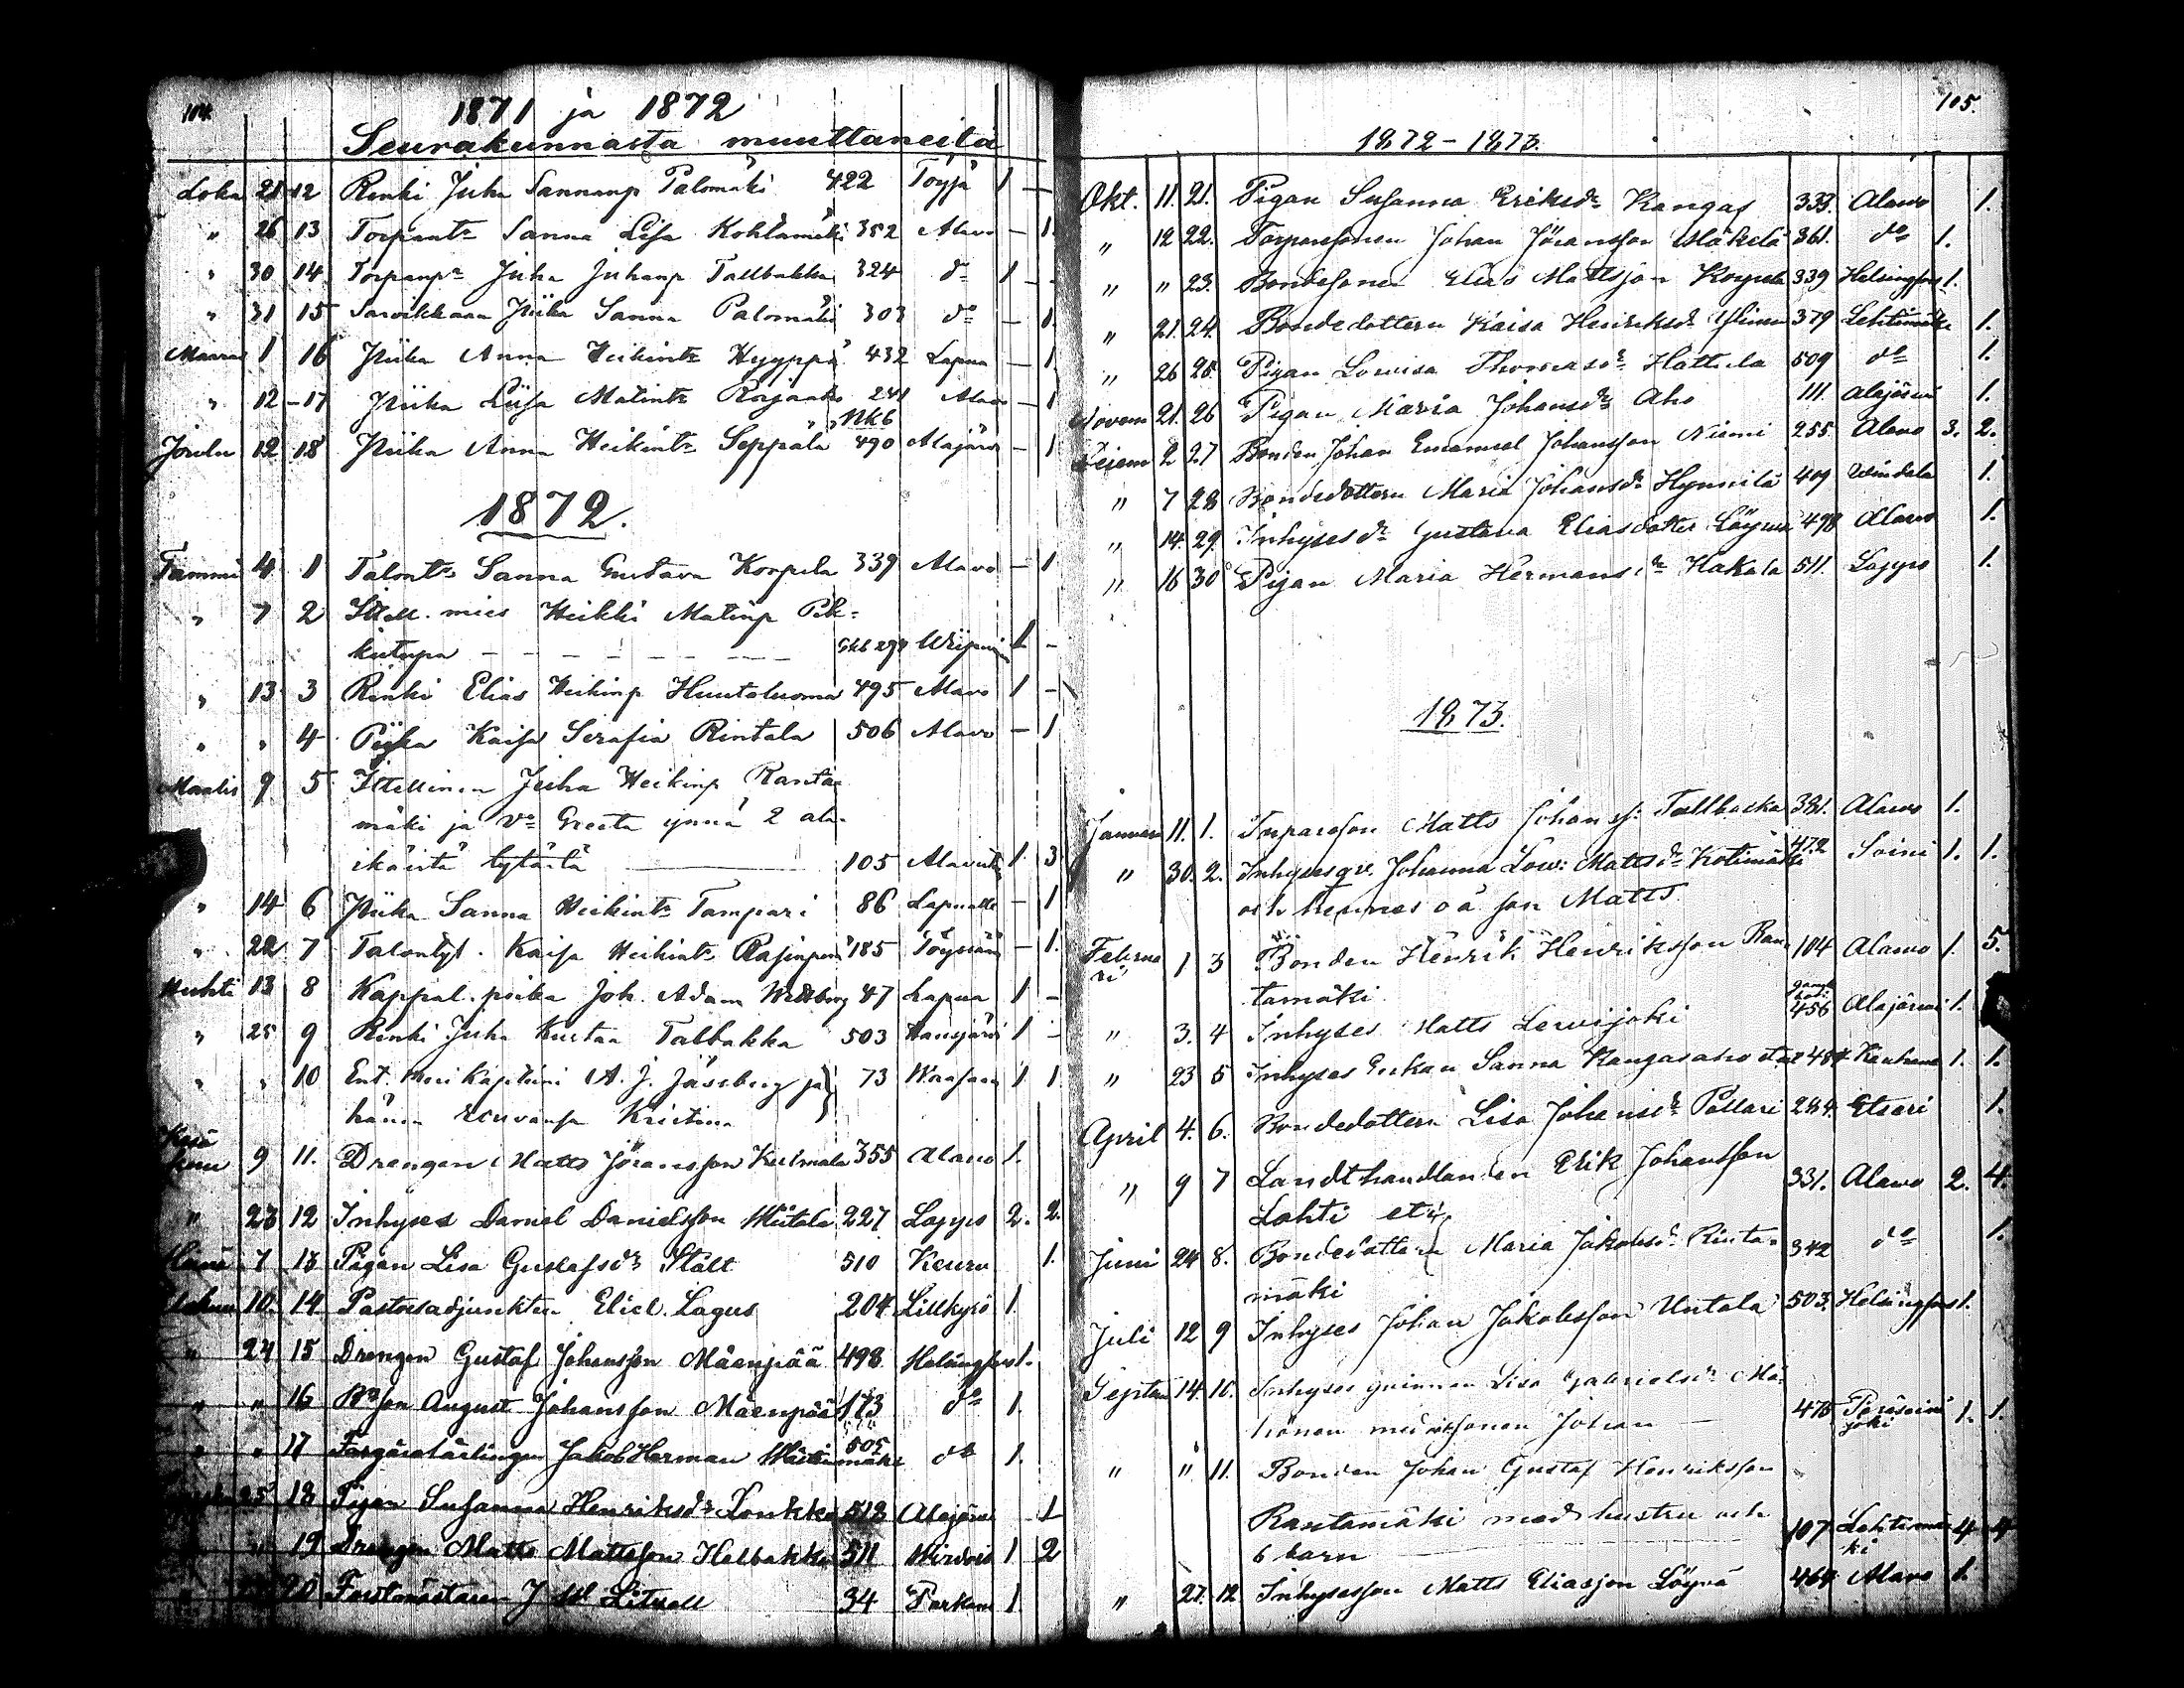 104.
1871 ja 1872
Seurakunnasta muuttaneita
Loka 21 12 Renki Juha Sannanp Palomäki 422 Töysä 1 —
" 26 13 Torpantr Sanna Lisa Kohlamäki 352 Alavo — 1.
" 30 14 Torpanpr Juha Juhanp Tallbakka 324 do 1 —
" 31 15 Piika Sanna Palomäki 303 do — 1.
Marras 1 16 Piika Anna Heikintr Hyyppä 432 Lapua — 1
" 12 17 Piika Liisa Matintr 241 Alavo — 1
Nkb
Joulu 12 18 Piika Anna Heikintr Seppälä 490 Alajärvi — 1
1872.
Tammi 4 1 Talontr Sanna Gustava Korpela 339 Alavo — 1
" 7 2 Itsell. mies Heikki Matinp
1 —
" 13 3 Renki Elias Heikinp Huntaluoma 495 Alavo 1 —
" " 4 Piika Kaisa Serafia Rintala 506 Alavo — 1
Maalis 9 5 Itsellinen Juha Heikinp Ranta-
mäki ja vo Greeta ynnä 2 ala-
ikäistä tytärtä 105 Alavu 1. 3
" 14 6 Piika Sanna Heikintr Tampari 86 Lapualle — 1
" 22 7 Talontyt. Kaisa Heikintr 185 Töysään — 1.
Huhti 13 8 Kappal. poika Joh. Adam 47 Lapua 1 —
" 25 9 Renki Juha Kustaa Talbakka 503 1 —
" " 10 Ent. Meri Kapteini A. J. Jässberg ja 73 Waasaan 1 1
hänen rouvansa Kristina
Kesä
kuu 9 11. Drengen Matts Jöransson Kulmala 355 Alavo 1.
" 23 12 Inhyses Daniel Danielsson 227 Lappo 2. 2.
Heinä 7 13 Pigan Lisa Gustafsdr Stålt 510 Keuru 1.
10. 14. Pastorsadjunkten Eliel Lagus 204 Lillkyrö 1.
" 24 15 Drengen Gustaf Johansson Mäenpää 498 Helsingfors 1.
" " 16 Bdson August Johansson Mäenpää 173 do 1.
" " 17 Jakob Herman 505 do 1.
25 18 Pigan Susanna Henriksdr Lonkka 512 Alajärvi 1
" 19 Drengen Matts Mattsson Helbakka 511 Wirdois 1 2
20 Forstmästaren J 34 1
105.
1872 - 1873.
Okt. 11. 21. Pigan Susanna Eriksdr Kangas 333. Alavo 1.
" 12 22. Torparesonen Johan Jöransson Mäkelä 361. do 1.
" " 23. Bondesonen Elias Mattsson Korpela 339 Helsingfors 1.
" 21. 24. Bondedottern Kaisa Henriksdr 379 Lehtimäki 1.
" 26 25. Pigan Lowisa Thomasdr Hattula 509 do 1.
Novem 21. 26 Pigan Maria Johansdr Aho 111. Alajärvi 1.
Decem 2 27 Bonden Johan Emanuel Johansson Niemi 255. Alavo 3. 2.
" 7 28 Bondedottern Maria Johansdr Hynnilä 409 Windala 1.
" 14. 29. Inhysesdr Gustava Eliasdotter Löyvä 498 Alavo 1.
" 16 30 Pigan Maria Hermansdr Hakala 511. Lappo 1.
1873.
Januari 11. 1. Torpareson Matts Johanss: Tallbacka 331. Alavo 1.
" 30. 2. Inhysesqv. Johanna Low: Mattsdr Kotimäki 472 Soini 1. 1.
och hennes o ä son Matts
Februa
ri 1 3 Bonden Henrik Henriksson Ran- 104 Alavo 1. 5.
tamäki
" 3. 4 Inhyses Matts Lewijoki 456 Alajärvi 1.
" 23 5 Inhyses Enkan Sanna Kangasaho Kauhava 1. 1.
April 4. 6. Bondedottern Lisa Johansdr Pollari 284. Etseri 1.
" 9 7 Landthandlanden Erik Johansson
Lahti 331. Alavo 2. 4.
Juni 24 8. Bondedottern Maria Jakobsdr Rinta- 342 do 1.
mäki
Juli 12 9 Inhyses Johan Jakobsson Untala 503. Helsingfors 1.
Septem 14. 10. Inhyses qvinnan Lisa Gabrielsdr Mä-
hönen med sonen Johan — 475 Peräseinä
joki 1. 1.
" " 11. Bonden Johan Gustaf Henriksson
Rantamäki med hustru och
6 barn 107. Lehtimä
ki 4 4
" 27. 12 Inhysesson Matts Eliasson Löyvä 464 Alavo 1.